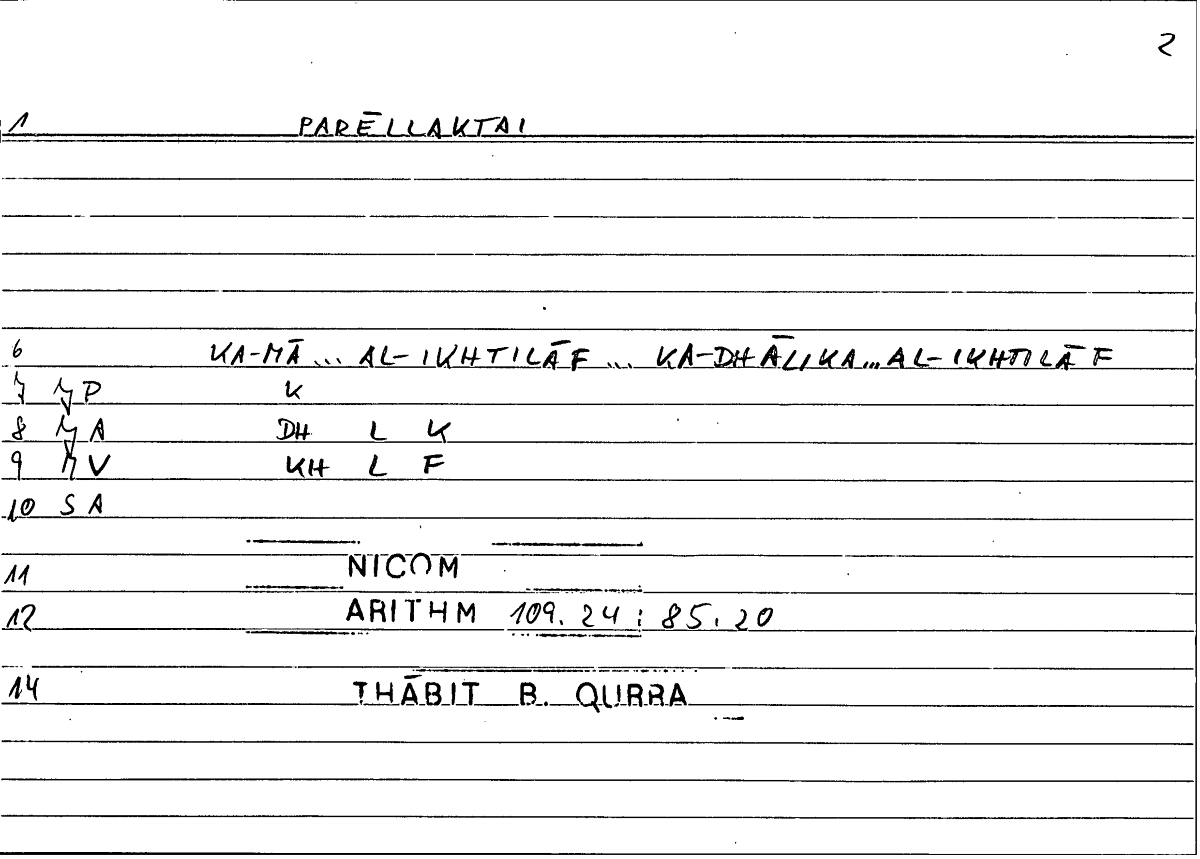 2
1 PARĒLLAKTAI
6 KA-MĀ ... AL-IKHTILĀF ... KA-DHĀLIKA ... AL-IKHTILĀF
7 P K
8 A DH L K
9 V KH L F
10 S A
11 NICOM
12 ARITHM 109.24 : 85.20
14 THĀBIT B. QURRA